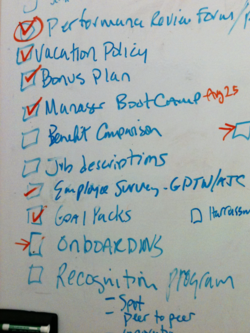 Performance Review Form/
Vacation Policy
Bonus Plan
Manager BootCamp Aug 25
Benefit Comparison
Job descriptions
Employee Survey - GPTW/AJC
Goal Packs
Harrassm
ONBOARDING
Recognition program
- Spot
- Peer to peer